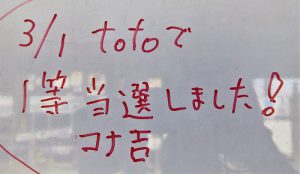 3/1 totoで
1等当選しました!
コナ吉